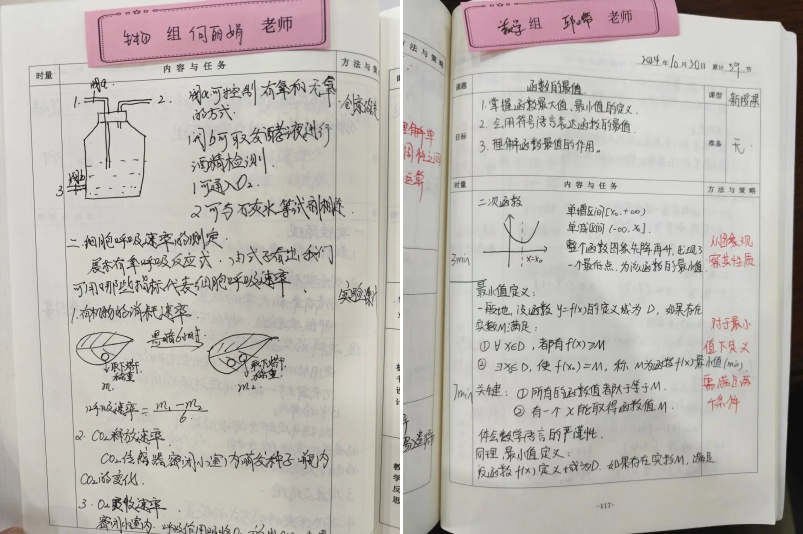 生物 组 何丽娟 老师
时量
内容与任务
方法与策
阀a
1.
2.
阀a可控制有氧和无氧
的方式.
创意
阀b可取发酵液进行
酒精检测.
1可通入O₂.
3
阀b
2可与石灰水等试剂相连.
二.细胞呼吸速率的测定.
展示有氧呼吸反应式.
可用哪些指标代表细胞呼吸速率.
实验
1.有机物的消耗速率.
黑暗6小时
取下烘干
称重
m₁
取下烘干
称重
m₂
呼吸速率=(m₁-m₂)/6
2.CO₂释放速率.
CO₂传感器,密闭小室内萌发种子
瓶内
CO₂的变化.
3.O₂吸收速率.
密闭小室内.
数学 组 老师
方法与策略
2024年10月30日 累计39节
课题
函数的最值
课型
新授课
目标
1.掌握函数最大值、最小值的定义.
2.会用符号语言表达函数的最值.
3.理解函数最值的作用。
准备
无.
时量
内容与任务
方法与策略
二次函数
单增区间[x₀,+∞)
单减区间(-∞,x₀].
x=x₀
整个函数图象先降再升,出现了
一个最低点,为该函数的最小值.
3min
从图象观
察其性质
最小值定义:
一般地,设函数y=f(x)的定义域为D,如果存在
实数M满足:
① ∀x∈D,都有f(x)≥M
② ∃x₀∈D,使f(x₀)=M,称M为函数f(x)最小值(min).
对于最小
值下定义
需满足两
个条件
7min
关键:①所有的函数值都大于等于M.
②有一个x能取得函数值M.
体会数学语言的严谨性.
同理,最小值定义:
设函数f(x)定义域为D.如果存在实数M,满足
教
学
反
思
-117-